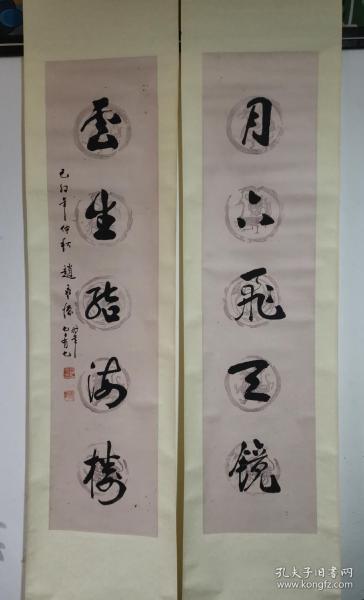 月下飞天镜
云生结海楼
己卯年仲秋
孔夫子旧书网
www.kongfz.com